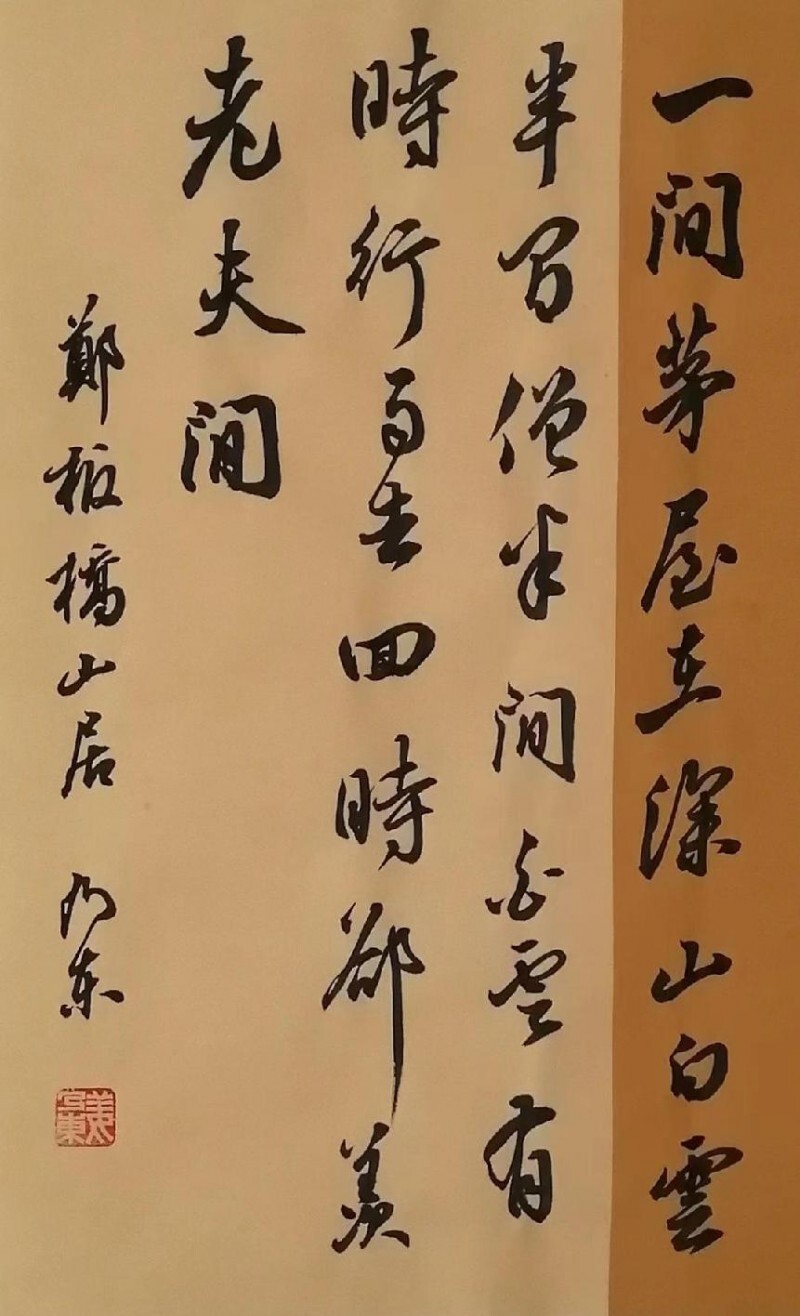 一間茅屋在深山白雲
半間僧半間白雲有
時行雨去回時卻羨
老夫間
鄭板橋山居 乃東